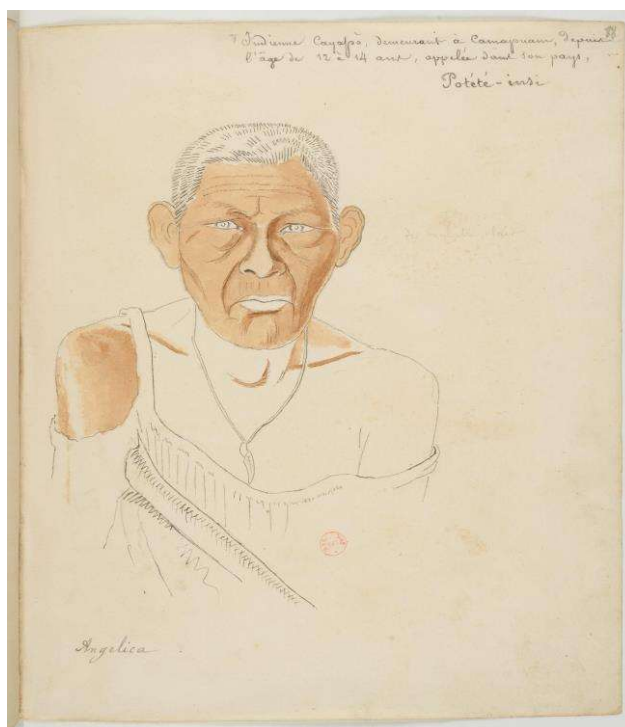 Indienne Cayapò, demeurant à Camapuam, depuis
l'âge de 12 à 14 ans, appelée dans son pays,
Potété-insi
Angelica